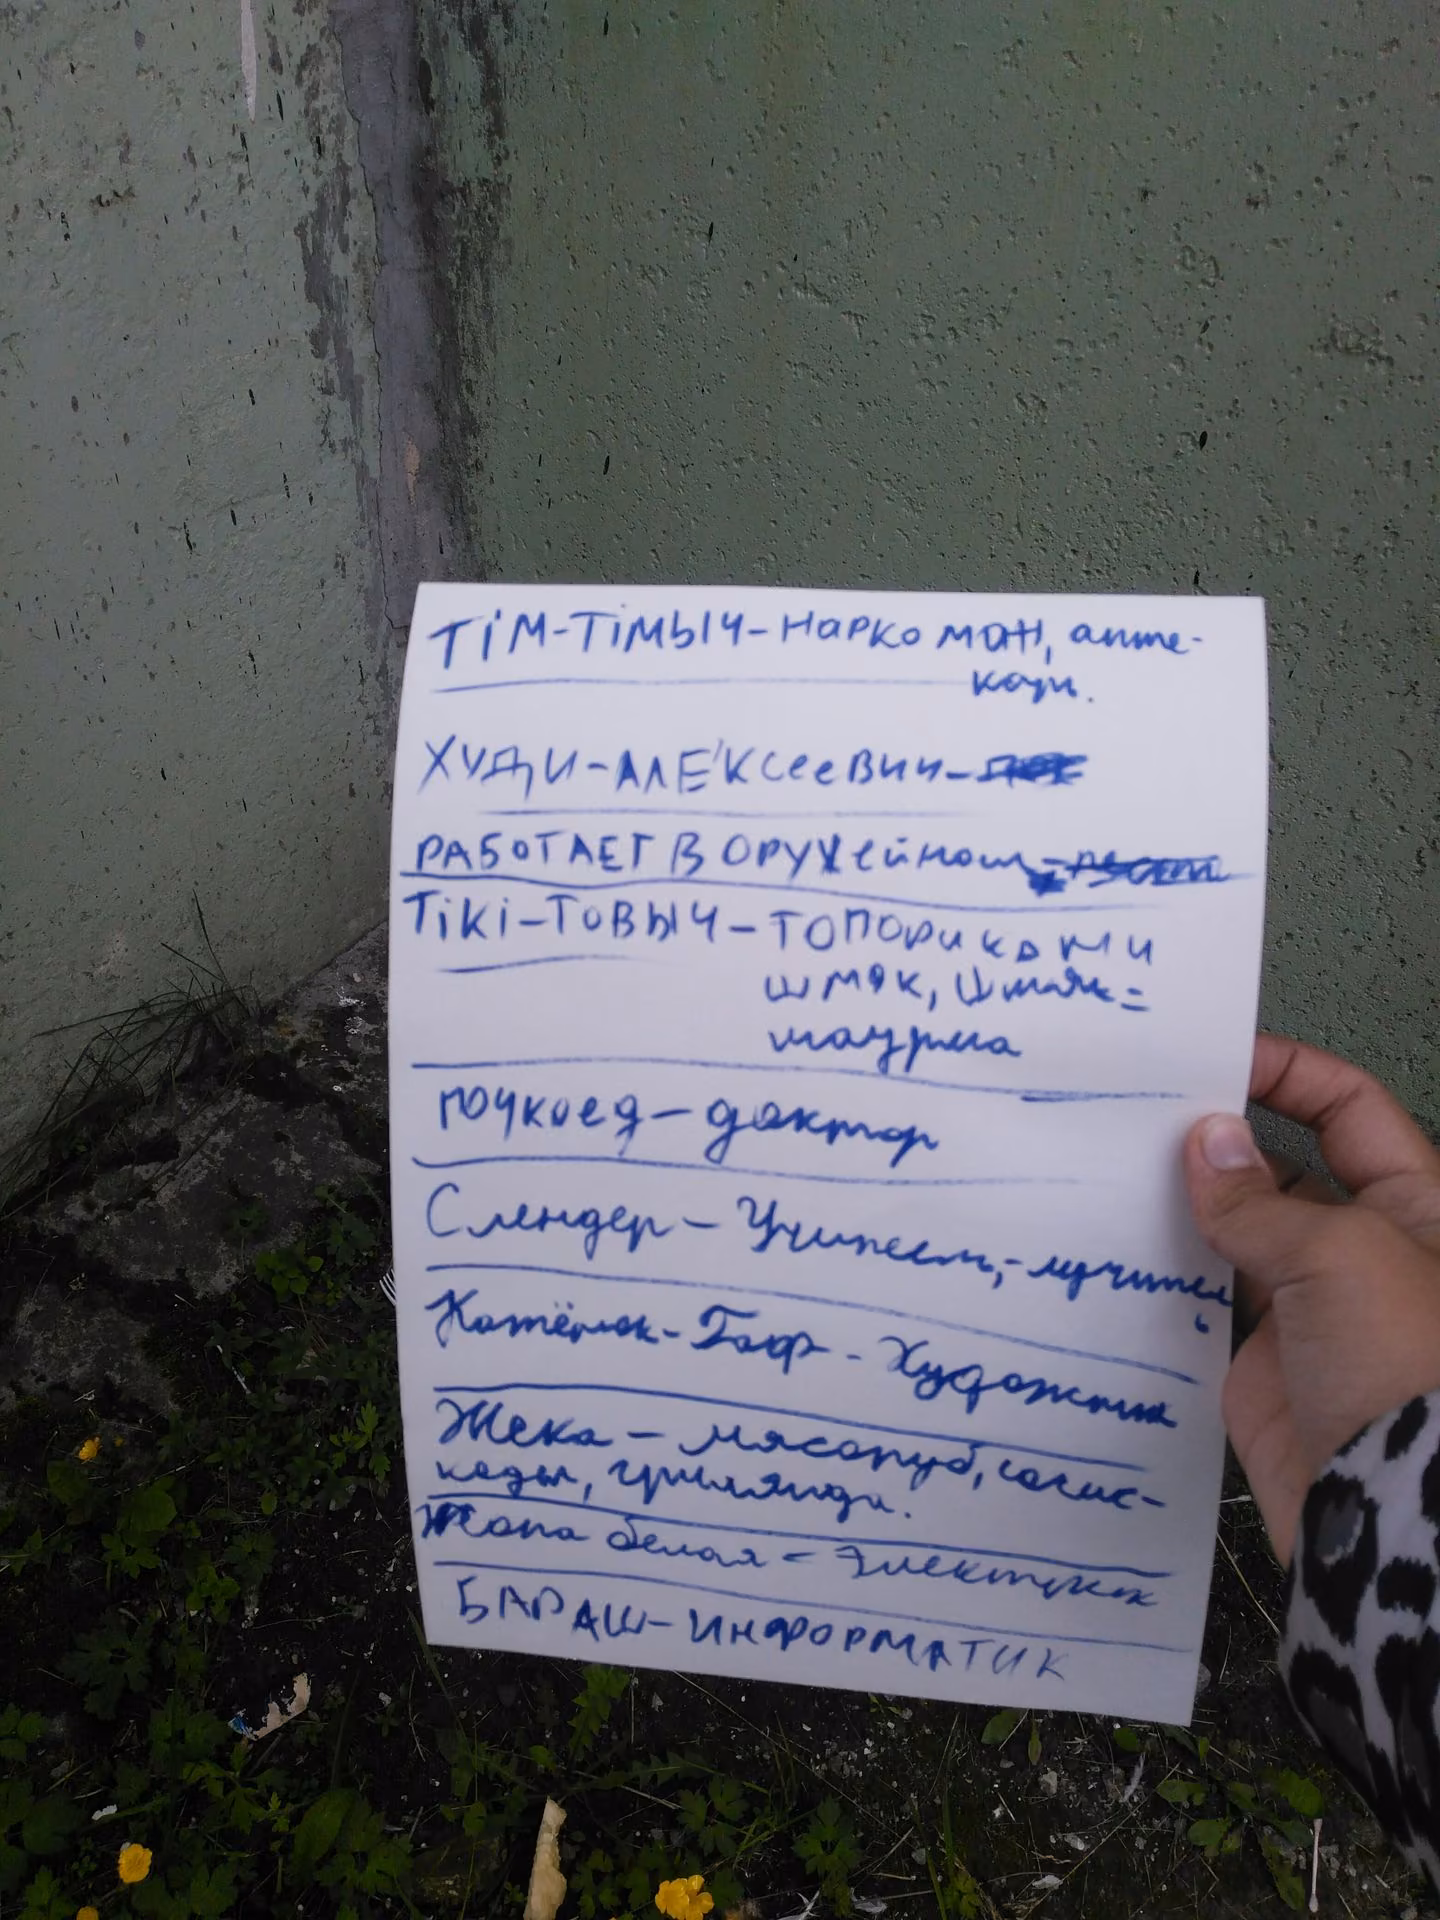 Тiм-Тiмыч-Наркоман, апте-
карь.
Худи-Алексеевич-
РАБОТАЕТ В оружейном
Тiкi-Товыч-топориками
шмяк, шмяк=
шаурма
почкоед-доктор
Слендер-Учитель,-мучитель
Котёнок-Гаф-Художник
Жека-мясоруб, сосис-
коды, гирлянда.
Жопа белая-Электрик
БАРАШ-ИНФОРМАТИК